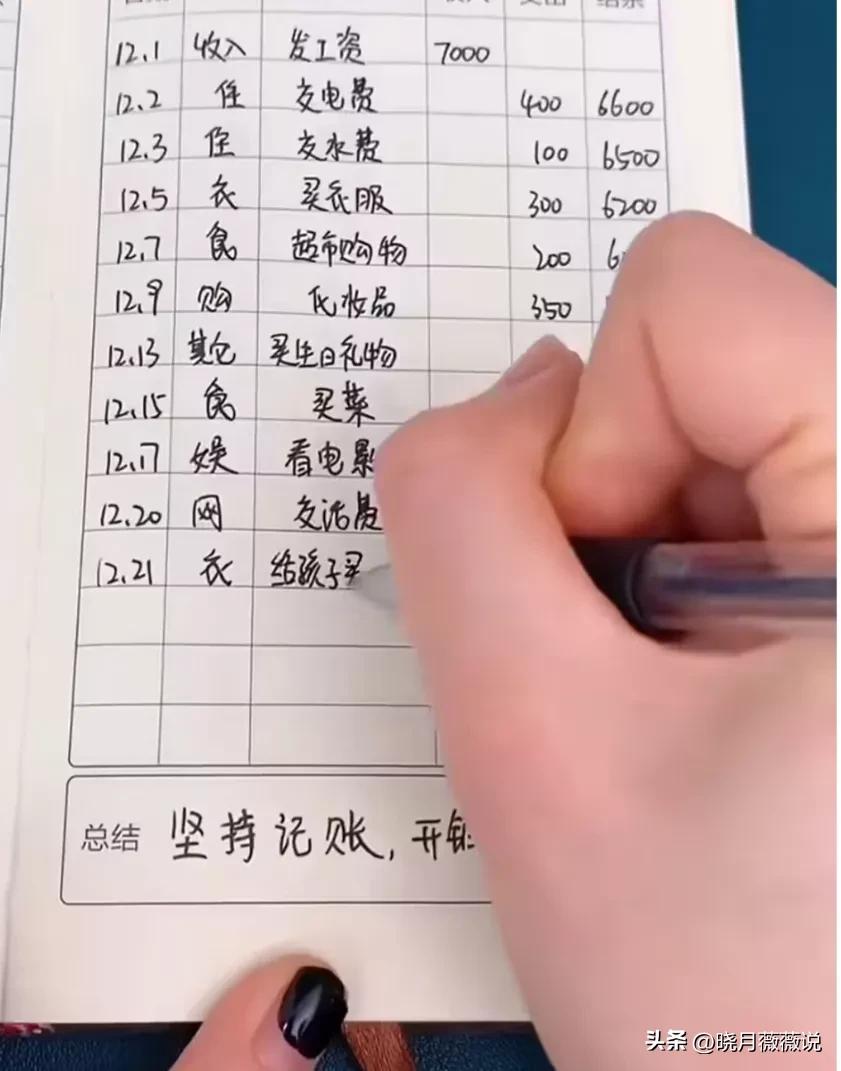 12.1 收入 发工资 7000
12.2 住 交电费 400 6600
12.3 住 交水费 100 6500
12.5 衣 买衣服 300 6200
12.7 食 超市购物 200 6
12.9 购 化妆品 350
12.13 其它 买生日礼物
12.15 食 买菜
12.17 娱 看电影
12.20 网 交话费
12.21 衣 给孩子买
总结 坚持记账,开销
头条 @晓月薇薇说